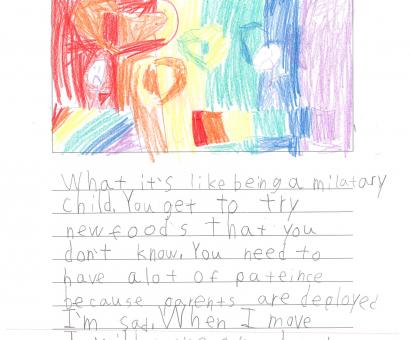 What it's like being a milatary
child. You get to try
new food's that you
don't know. You need to
have alot of pateince
because parents are deployed
I'm sad. When I move